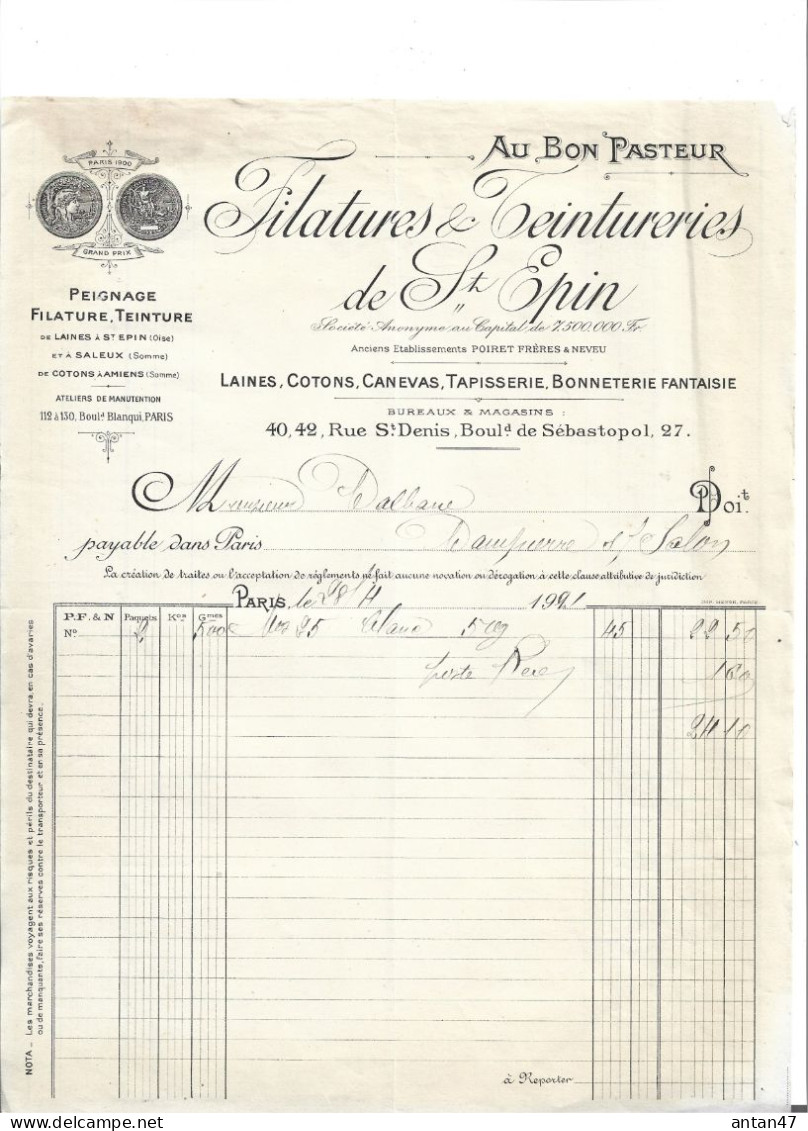 AU BON PASTEUR
PARIS 1900
GRAND PRIX
Filatures & Teintureries
de St Epin
Société Anonyme au Capital de 7.500.000 Fr
Anciens Etablissements POIRET FRÈRES & NEVEU
PEIGNAGE
FILATURE, TEINTURE
DE LAINES À ST EPIN (Oise)
ET À SALEUX (Somme)
DE COTONS À AMIENS (Somme)
ATELIERS DE MANUTENTION
112 à 130, Boulᵈ Blanqui, PARIS
LAINES, COTONS, CANEVAS, TAPISSERIE, BONNETERIE FANTAISIE
BUREAUX & MAGASINS :
40, 42, Rue St Denis, Boulᵈ de Sébastopol, 27.
Monsieur Dalbane Doit
payable dans Paris Dampierre s/ Salon
La création de traites ou l'acceptation de règlements ne fait aucune novation ou dérogation à cette clause attributive de juridiction
PARIS, le 28/4 1921
P.F. & N Paquets Kos Gmes
No 2 500 25 blanc 500 45 22 50
poste 1 60
24 10
à Reporter
NOTA _ Les marchandises voyagent aux risques et périls du destinataire qui devra, en cas d'avaries
ou de manquants, faire ses réserves contre le transporteur et en sa présence.
antan47